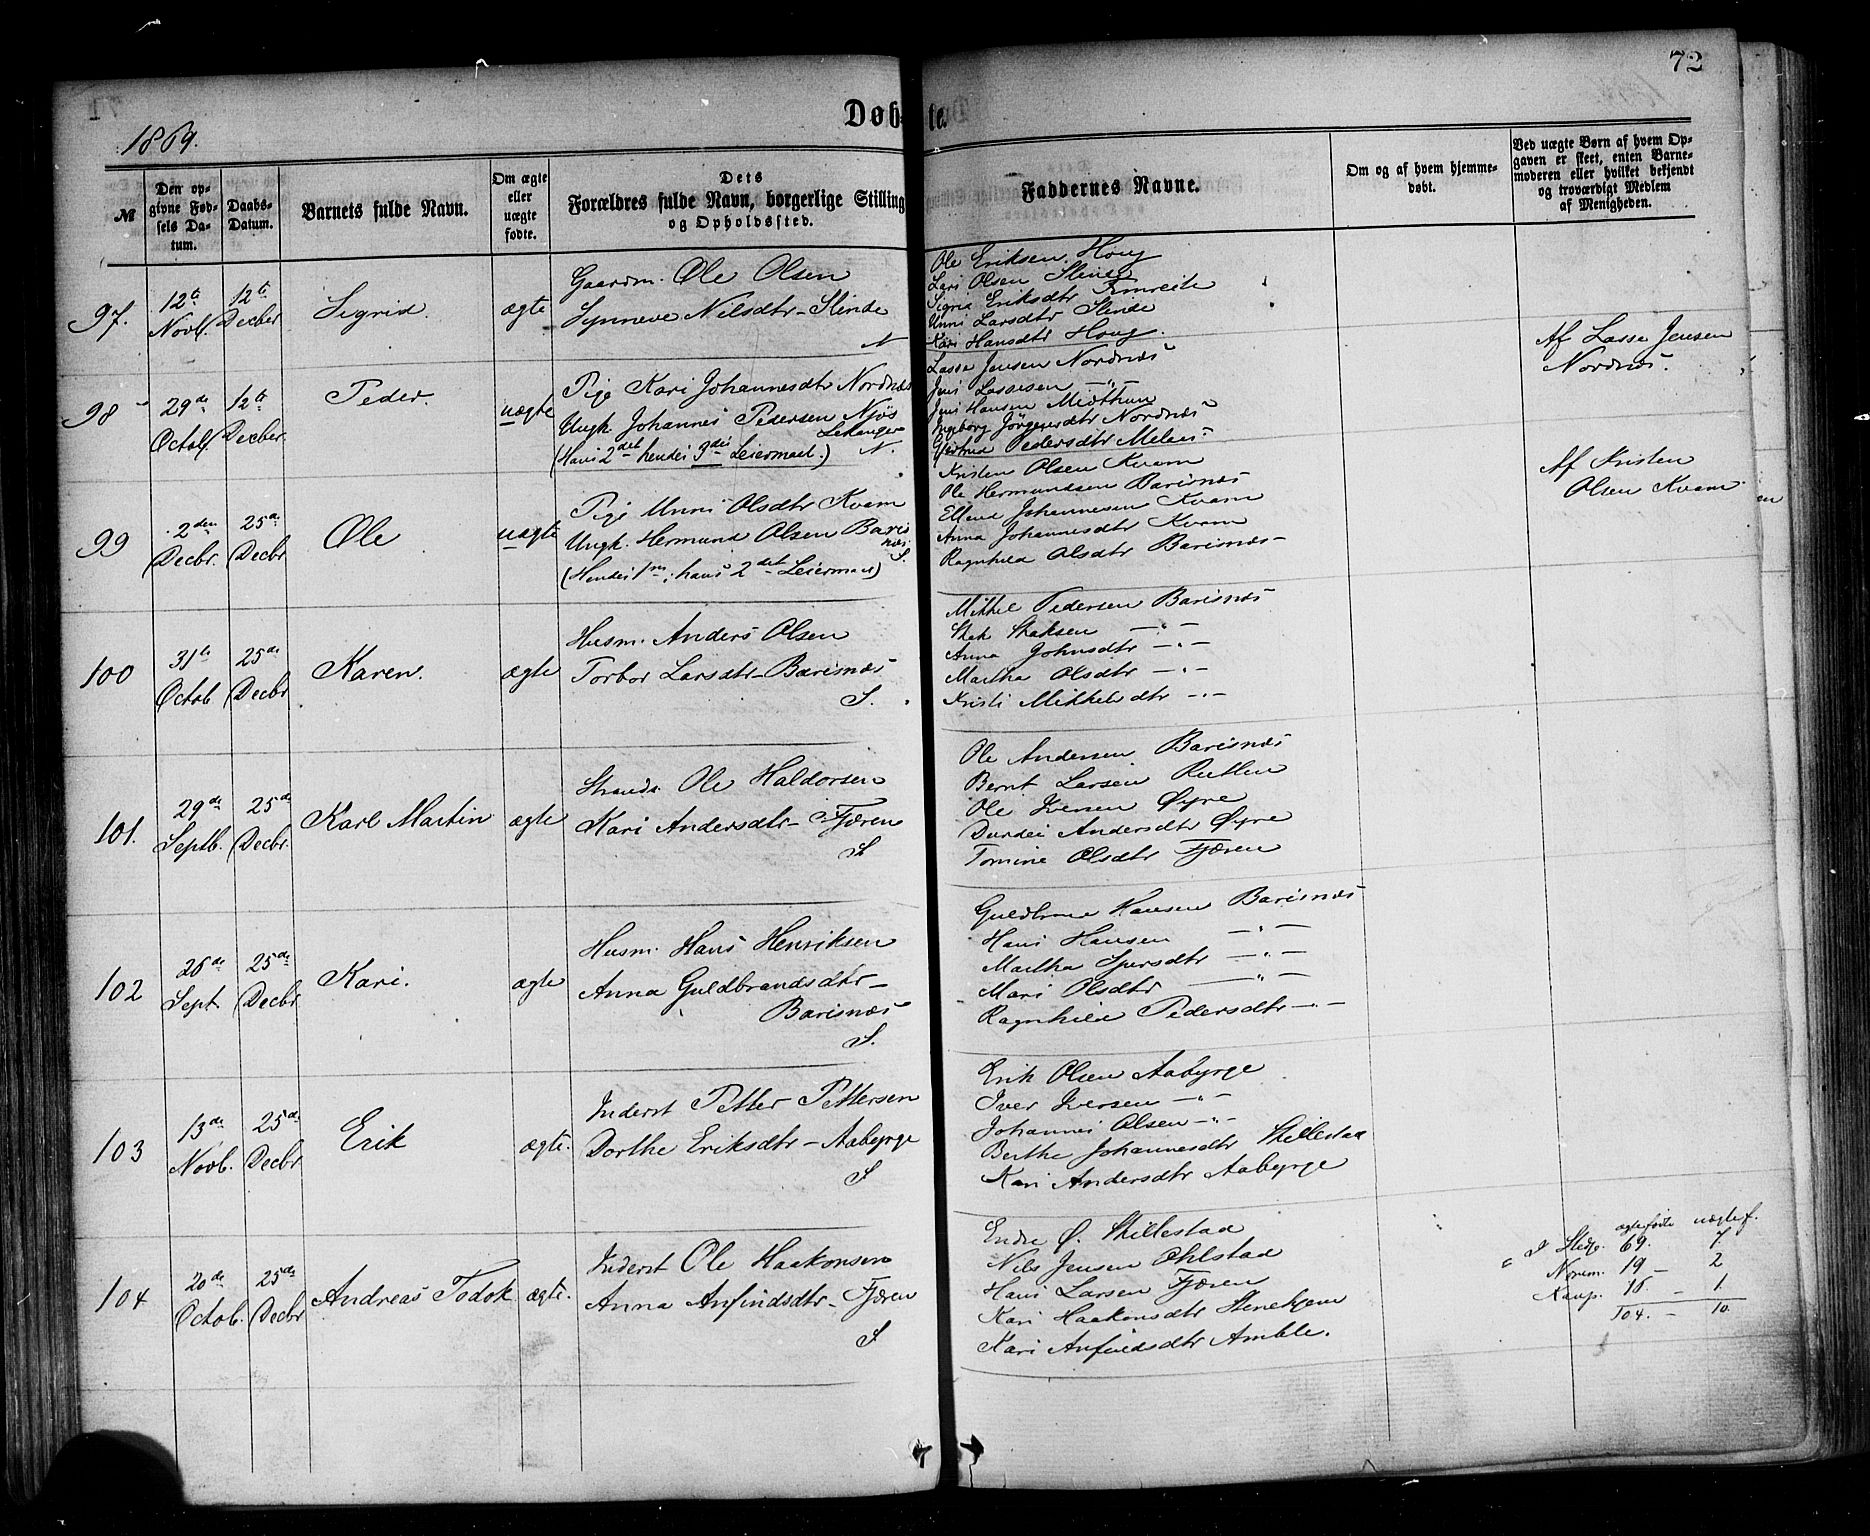 72
Døbte.
1869.
№
Den opgivne Fødsels Datum.
Daabs-Datum.
Barnets fulde Navn.
Om ægte eller uægte fødte.
Dets Forældres fulde Navn, borgerlige Stilling og Opholdssted.
Faddernes Navne.
Om og af hvem hjemmedøbt.
Ved uægte Børn af hvem Opgaven er skeet, enten Barnemoderen eller hvilket bekjendt og troværdigt Medlem af Menigheden.
97.
12te Novb.
12te Decber
Sigrid.
ægte
Gaardm. Ole Olsen
Synneve Nilsdtr - Slinde
N
Ole Eriksen Houg
Lars Olsen Slinde
Sigrid Eriksdtr Fimreite
Unni Larsdtr Slinde
Kari Hansdtr Houg.
98
29de Octob.
12te Decber.
Peder.
uægte
Pige Kari Johannesdtr Nordnæs
Ungk. Johannes Pedersen Njøs
Lekanger
(Hans 2det hendes 3die Leiermaal.) N.
Lasse Jensen Nordnæs
Jens Lassesen —"—
Jens Hansen Midthun
Ingeborg Jørgensdtr Nordnæs
Gjertrud Pedersdtr Melas.
Af Lasse Jensen
Nordnæs.
99
2den Decbr.
25de Decbr
Ole
uægte
Pige Unni Olsdtr Kvam
Ungk. Hermund Olsen Barisnæs.
S.
(Hendes 1ste, hans 2det Leiermaal)
Kristen Olsen Kvam
Ole Hermundsen Barisnæs
Ellend Johannesen Kvam
Anna Johannesdtr Kvam
Ragnhild Olsdtr Barisnæs
Af Kristen
Olsen Kvam
100
31te Octob.
25de Decbr
Karen.
ægte
Husm. Anders Olsen
Torbor Larsdtr - Barisnæs
S.
Mikkel Pedersen Barisnæs
Stak Staksen —"—
Anna Johnsdtr —"—
Martha Olsdtr —"—
Kristi Mikkelsdtr —"—
101.
29de Septb.
25de Decbr.
Karl Martin
ægte
Strands. Ole Haldorsen
Kari Andersdtr - Fjæren
S
Ole Andersen Barisnæs
Bernt Larsen Rutlin
Ole Iversen Øyre
Durdei Andersdtr Øyre
Tomine Olsdtr Fjæren
102
26de Sept.
25de Decbr
Kari.
ægte
Husm. Hans Henriksen
Anna Guldbrandsdtr -
Barisnæs
S.
Guldbrand Hansen Barisnæs
Hans Hansen —"—
Martha Spersdtr —"—
Mari Olsdtr —"—
Ragnhild Pedersdtr —"—
103
13de Novb.
25de Decbr
Erik
ægte.
Inderst Petter Pettersen
Dorthe Eriksdtr - Aabyrge
S
Erik Olsen Aabyrge
Iver Iversen —"—
Johannes Olsen —"—
Berthe Johannesdtr Skillestad
Kari Andersdtr Aabyrge
104
20de Octob.
25de Decbr
Andreas Todok
ægte.
Inderst Ole Haakonsen
Anna Anfindsdtr - Fjæren
S
Endre Ø. Skillestad
Nils Jensen Ølstad
Hans Larsen Fjæren
Kari Haakonsdtr Stenehjem
Kari Anfindsdtr Amble.
ægtefødte uægtef.
I Stedje. 69. 7.
Norum. 19 — 2
Kaup. 16. — 1
104. — 10.